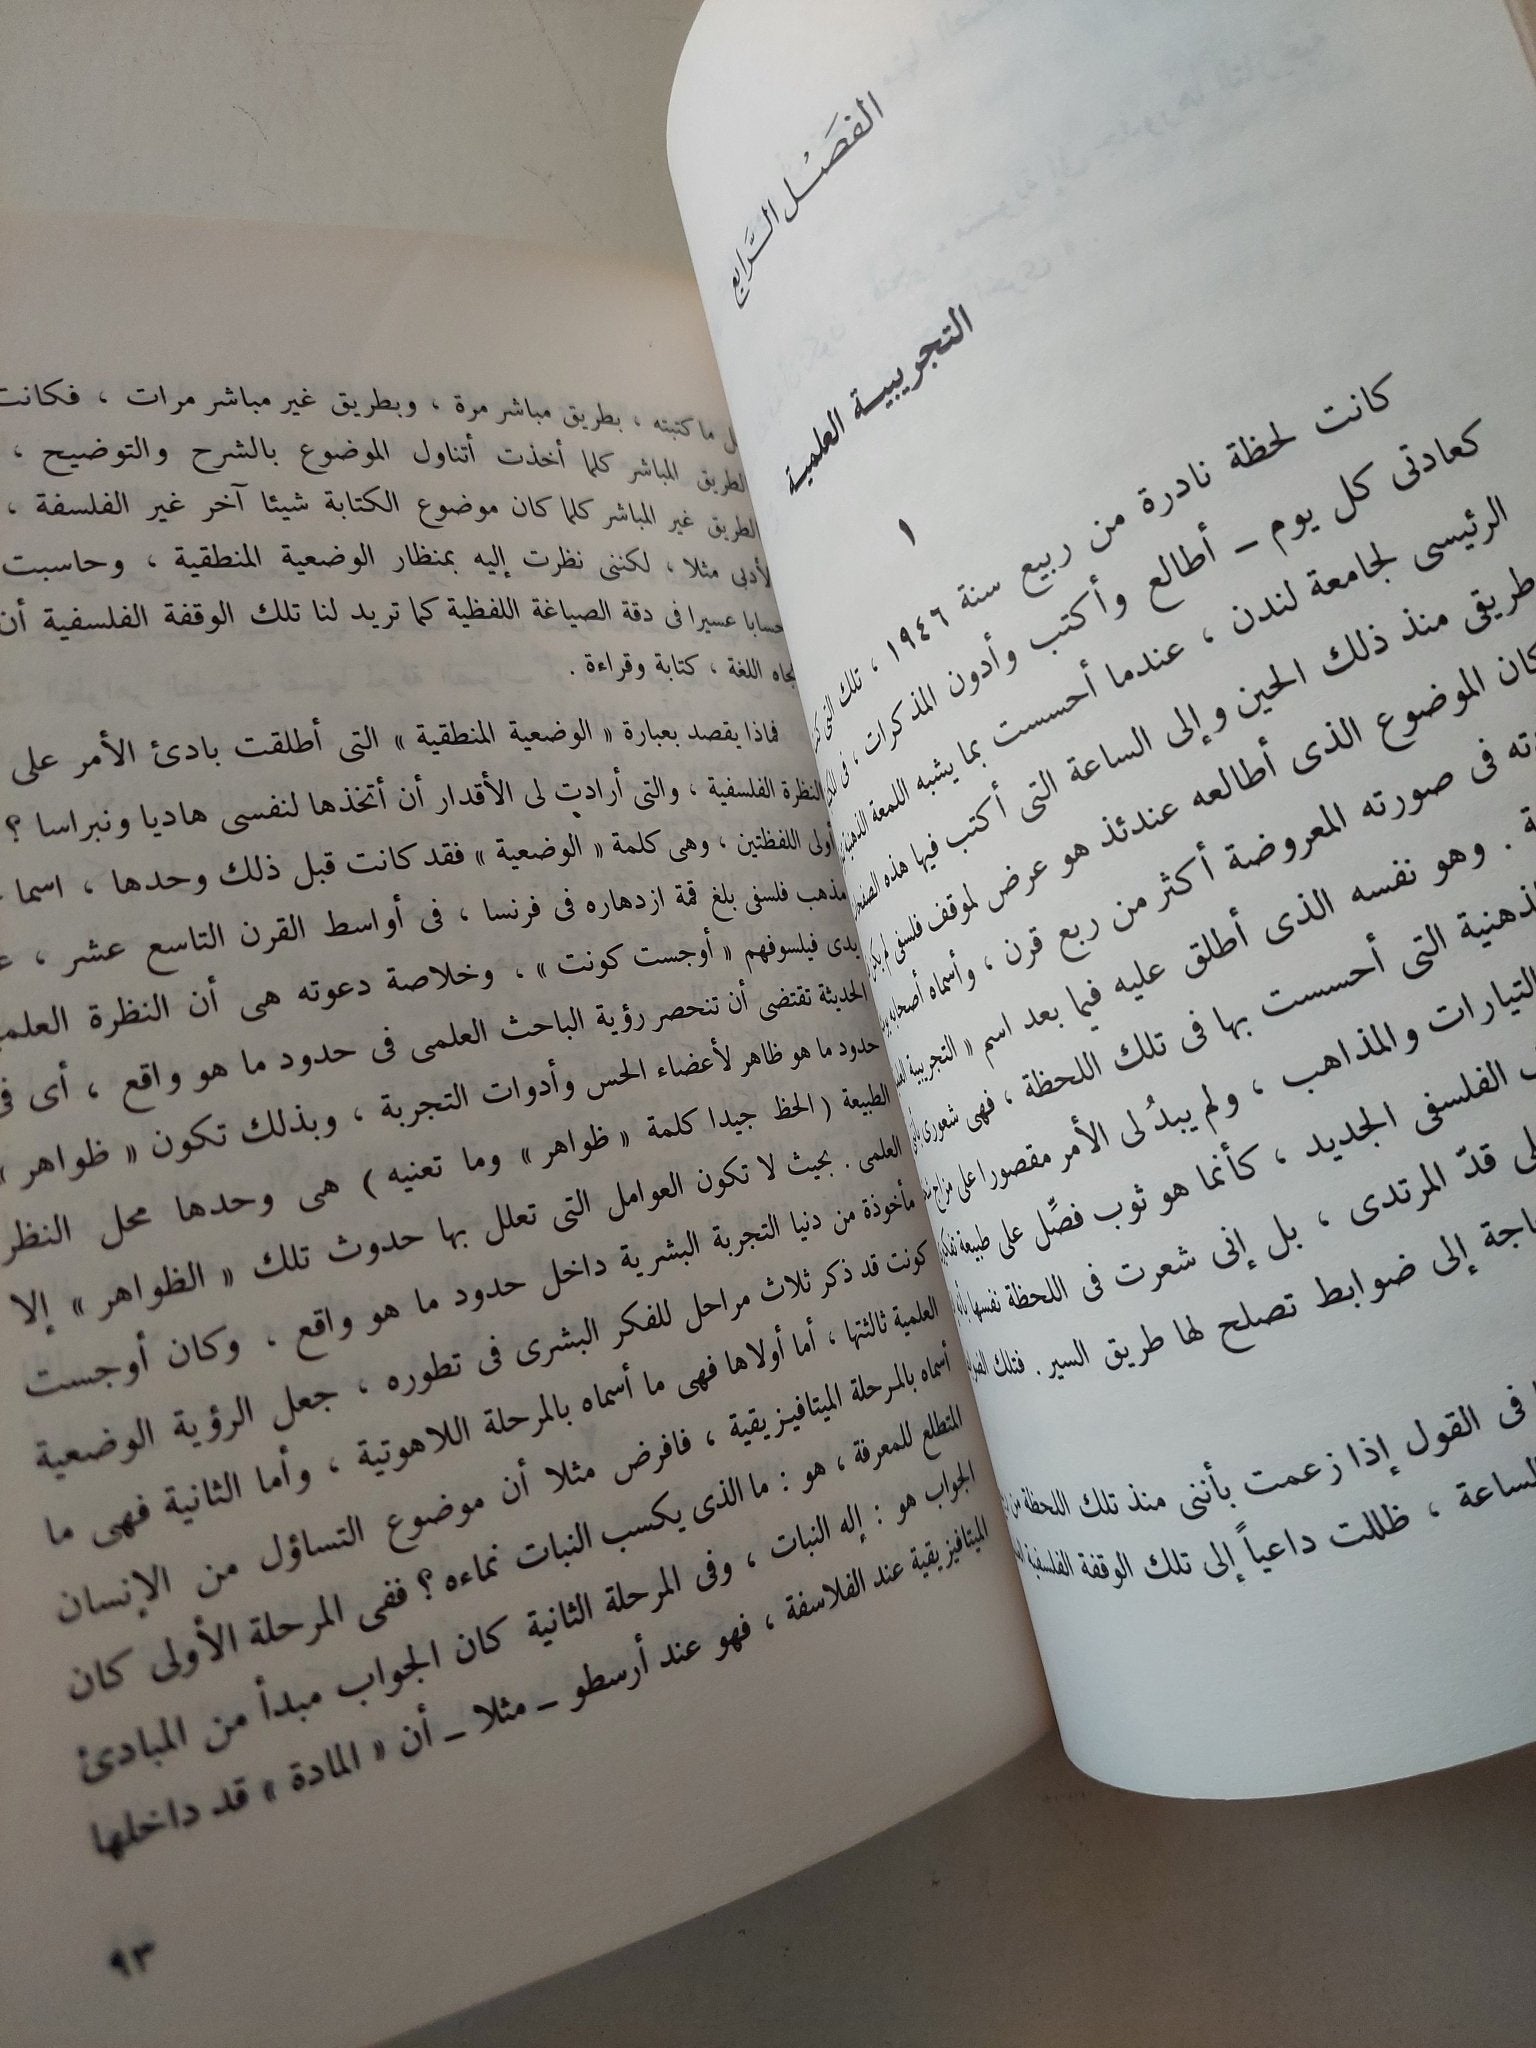 الفصل الرابع
التجريبية العلمية
١
كانت لحظة نادرة من ربيع سنة ١٩٤٦ ، تلك التى
كعادتى كل يوم – أطالع وأكتب وأدون المذكرات ، فى
الرئيسى لجامعة لندن ، عندما أحسست بما يشبه اللمعة الذهنية
طريقى منذ ذلك الحين وإلى الساعة التى أكتب فيها هذه
كان الموضوع الذى أطالعه عندئذ هو عرض لموقف فلسفى لم يكن
فى صورته المعروضة أكثر من ربع قرن ، وأسماه أصحابه
. وهو نفسه الذى أطلق عليه فيما بعد اسم « التجريبية
التى أحسست بها فى تلك اللحظة ، فهى شعورى
التيارات والمذاهب ، ولم يبدُ لى الأمر مقصورا على مزاج
الفلسفى الجديد ، كأنما هو ثوب فصِّل على طبيعة
قدّ المرتدى ، بل إنى شعرت فى اللحظة نفسها
إلى ضوابط تصلح لها طريق السير . فتلك
فى القول إذا زعمت بأننى منذ تلك اللحظة من
الساعة ، ظللت داعياً إلى تلك الوقفة الفلسفية
ما كتبته ، بطريق مباشر مرة ، وبطريق غير مباشر مرات ، فكانت
الطريق المباشر كلما أخذت أتناول الموضوع بالشرح والتوضيح ،
الطريق غير المباشر كلما كان موضوع الكتابة شيئا آخر غير الفلسفة ،
مثلا ، لكننى نظرت إليه بمنظار الوضعية المنطقية ، وحاسبت
حسابا عسيرا فى دقة الصياغة اللفظية كما تريد لنا تلك الوقفة الفلسفية أن
تجاه اللغة ، كتابة وقراءة .
فماذا يقصد بعبارة « الوضعية المنطقية » التى أطلقت بادئ الأمر على
النظرة الفلسفية ، والتى أرادت لى الأقدار أن أتخذها لنفسى هاديا ونبراسا ؟
أولى اللفظتين ، وهى كلمة « الوضعية » فقد كانت قبل ذلك وحدها ، اسما
مذهب فلسفى بلغ قمة ازدهاره فى فرنسا ، فى أواسط القرن التاسع عشر ،
يدى فيلسوفهم « أوجست كونت » ، وخلاصة دعوته هى أن النظرة العلمية
الحديثة تقتضى أن تنحصر رؤية الباحث العلمى فى حدود ما هو واقع ، أى فى
حدود ما هو ظاهر لأعضاء الحس وأدوات التجربة ، وبذلك تكون « ظواهر »
الطبيعة ( الحظ جيدا كلمة « ظواهر » وما تعنيه ) هى وحدها محل النظر
العلمى . بحيث لا تكون العوامل التى تعلل بها حدوث تلك « الظواهر » إلا
مأخوذة من دنيا التجربة البشرية داخل حدود ما هو واقع . وكان أوجست
كونت قد ذكر ثلاث مراحل للفكر البشرى فى تطوره ، جعل الرؤية الوضعية
العلمية ثالثتها ، أما أولاها فهى ما أسماه بالمرحلة اللاهوتية ، وأما الثانية فهى ما
أسماه بالمرحلة الميتافيزيقية ، فافرض مثلا أن موضوع التساؤل من الإنسان
المتطلع للمعرفة ، هو : ما الذى يكسب النبات نماءه ؟ ففى المرحلة الأولى كان
الجواب هو : إله النبات ، وفى المرحلة الثانية كان الجواب مبدأ من المبادئ
الميتافيزيقية عند الفلاسفة ، فهو عند أرسطو – مثلا – أن « المادة » قد داخلها
٩٣